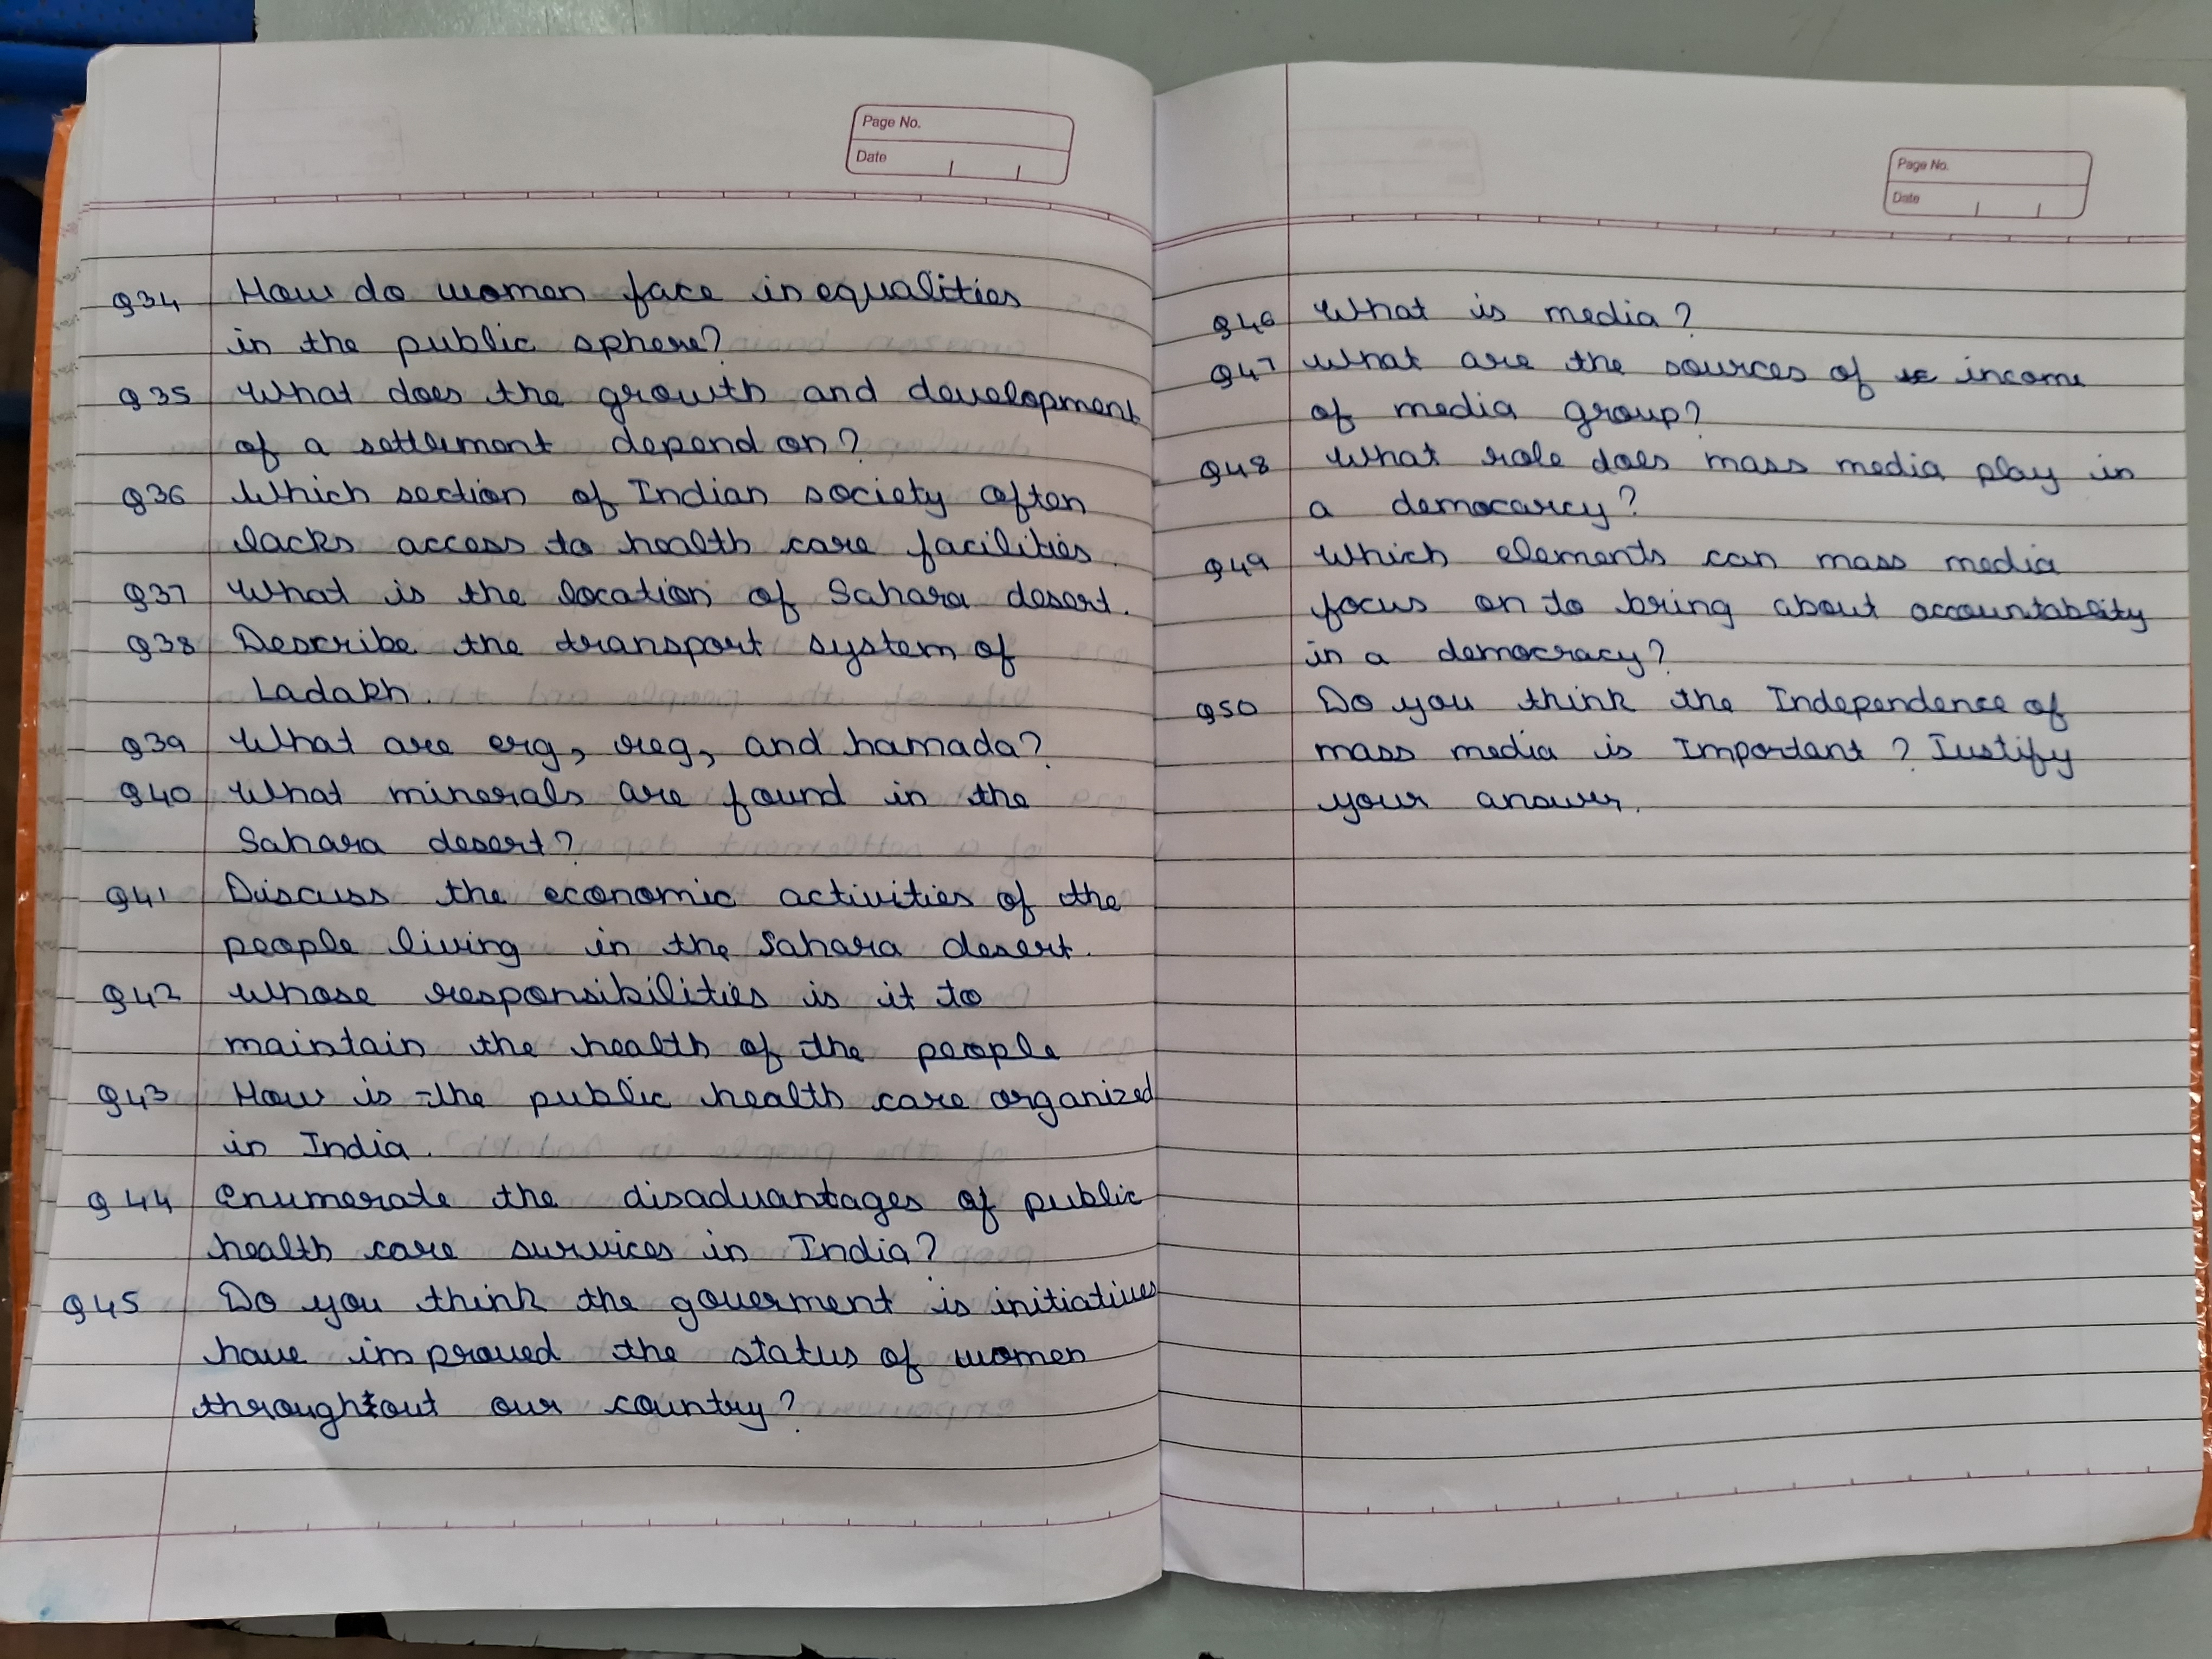 Page No.
Date
Q34 How do women face inequalities
in the public sphere?
Q35 What does the growth and development
of a settlement depend on?
Q36 Which section of Indian society often
lacks access to health care facilities.
Q37 What is the location of Sahara desert.
Q38 Describe the transport system of
Ladakh.
Q39 What are erg, reg, and hamada?
Q40 What minerals are found in the
Sahara desert?
Q41 Discuss the economic activities of the
people living in the Sahara desert.
Q42 Whose responsibilities is it to
maintain the health of the people
Q43 How is the public health care organized
in India.
Q44 Enumerate the disadvantages of public
health care survices in India?
Q45 Do you think the goverment is initiatives
have improved the status of women
throughtout our country?
Page No.
Date
Q46 What is media?
Q47 What are the sources of income
of media group?
Q48 What role does mass media play in
a democarcy?
Q49 Which elements can mass media
focus on to bring about accountablity
in a democracy?
Q50 Do you think the Independence of
mass media is Important? Justify
your answer.